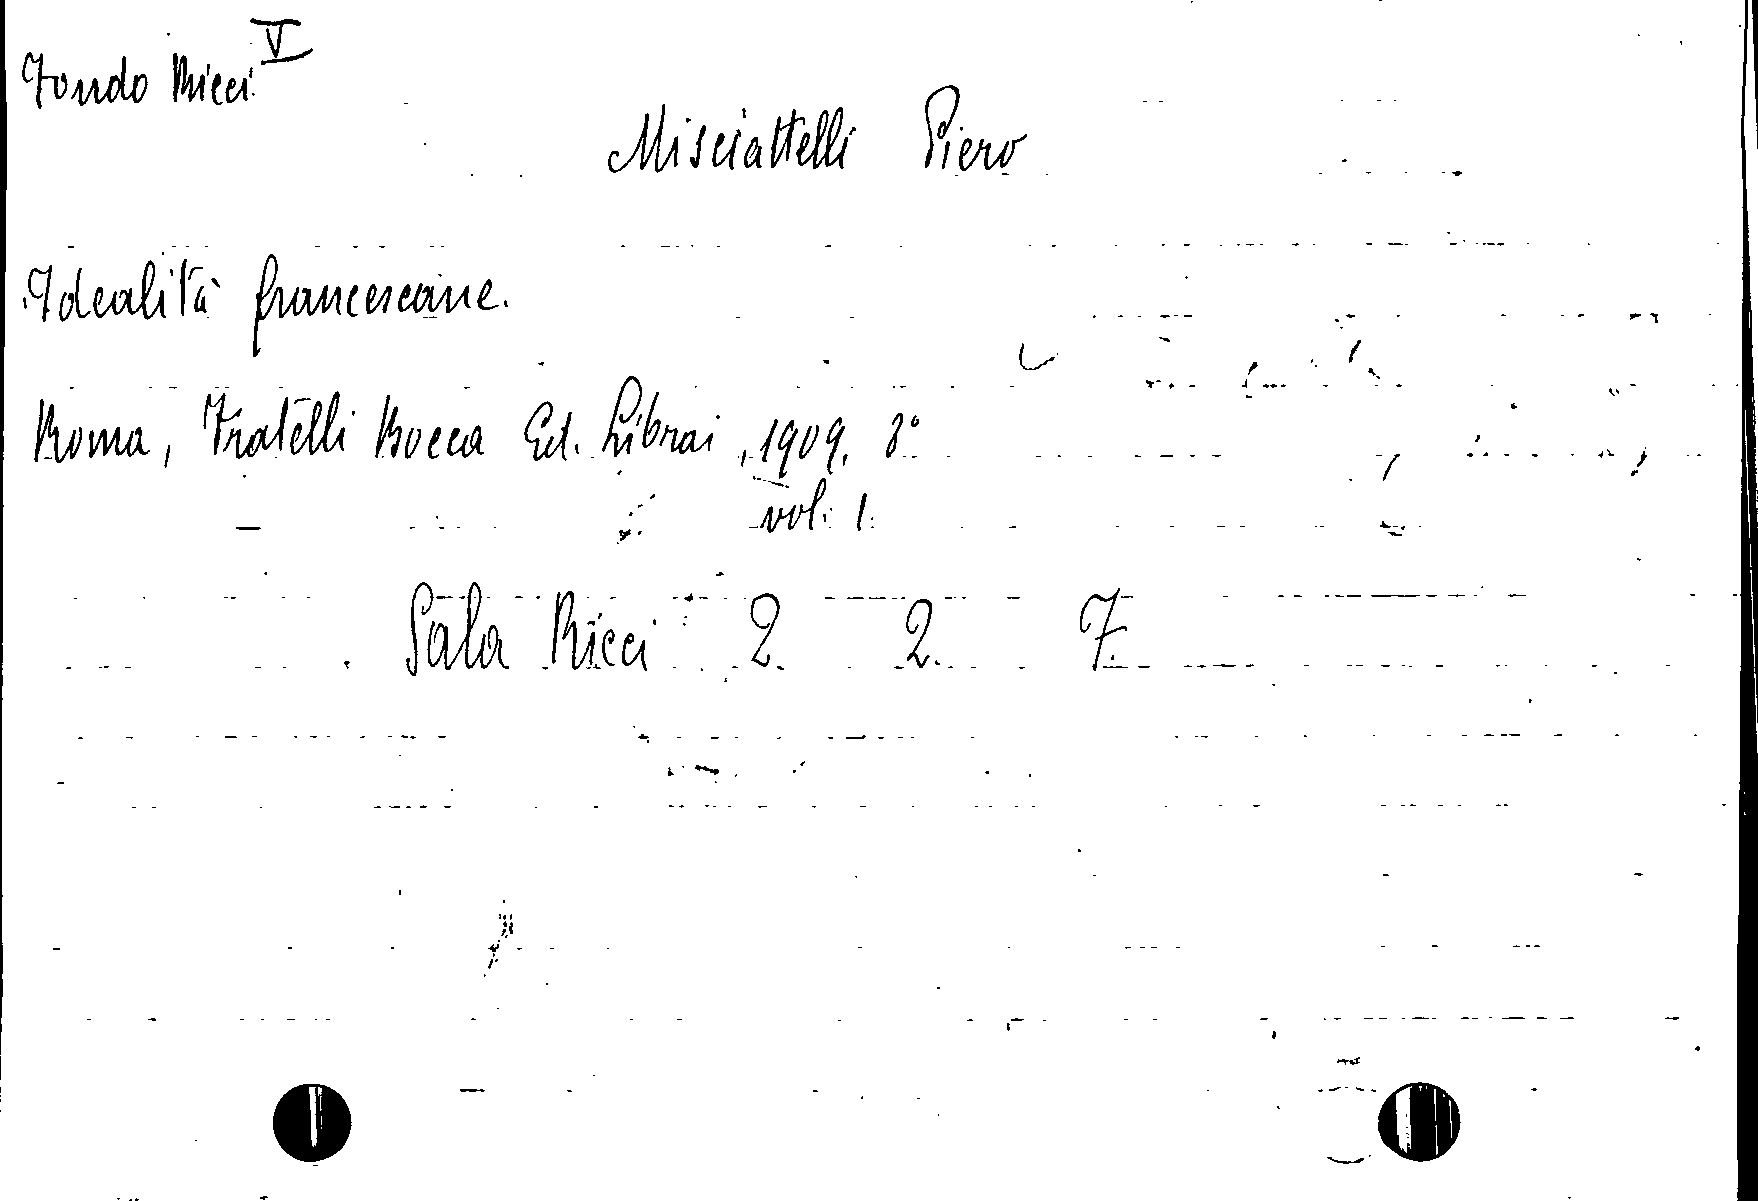 Fondo Ricci V
Misciattelli Piero
Idealità francescane.
Roma, Fratelli Bocca Ed. Librai, 1909. 8°
vol. 1.
Sala Ricci 2 2 7